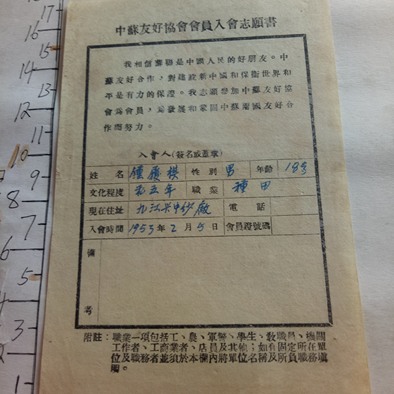 中蘇友好協會會員入會志願書
我相信蘇聯是中國人民的好朋友。中
蘇友好合作，對建設新中國和保衛世界和
平是有力的保證。我志願參加中蘇友好協
會爲會員，爲發展和鞏固中蘇兩國友好合
作而努力。
入會人（簽名或蓋章）
姓名 性別 男 年齡 18岁
文化程度 初五年 職業 種田
現在住址 九江 電話
入會時間 1953年2月5日 會員證號碼
備
考
附註：職業一項包括工、農、軍警、學生、教職員、機關
工作者、工商業者、店員及其他；如有固定所在單
位及職務者並須於本欄內將單位名稱及所負職務填